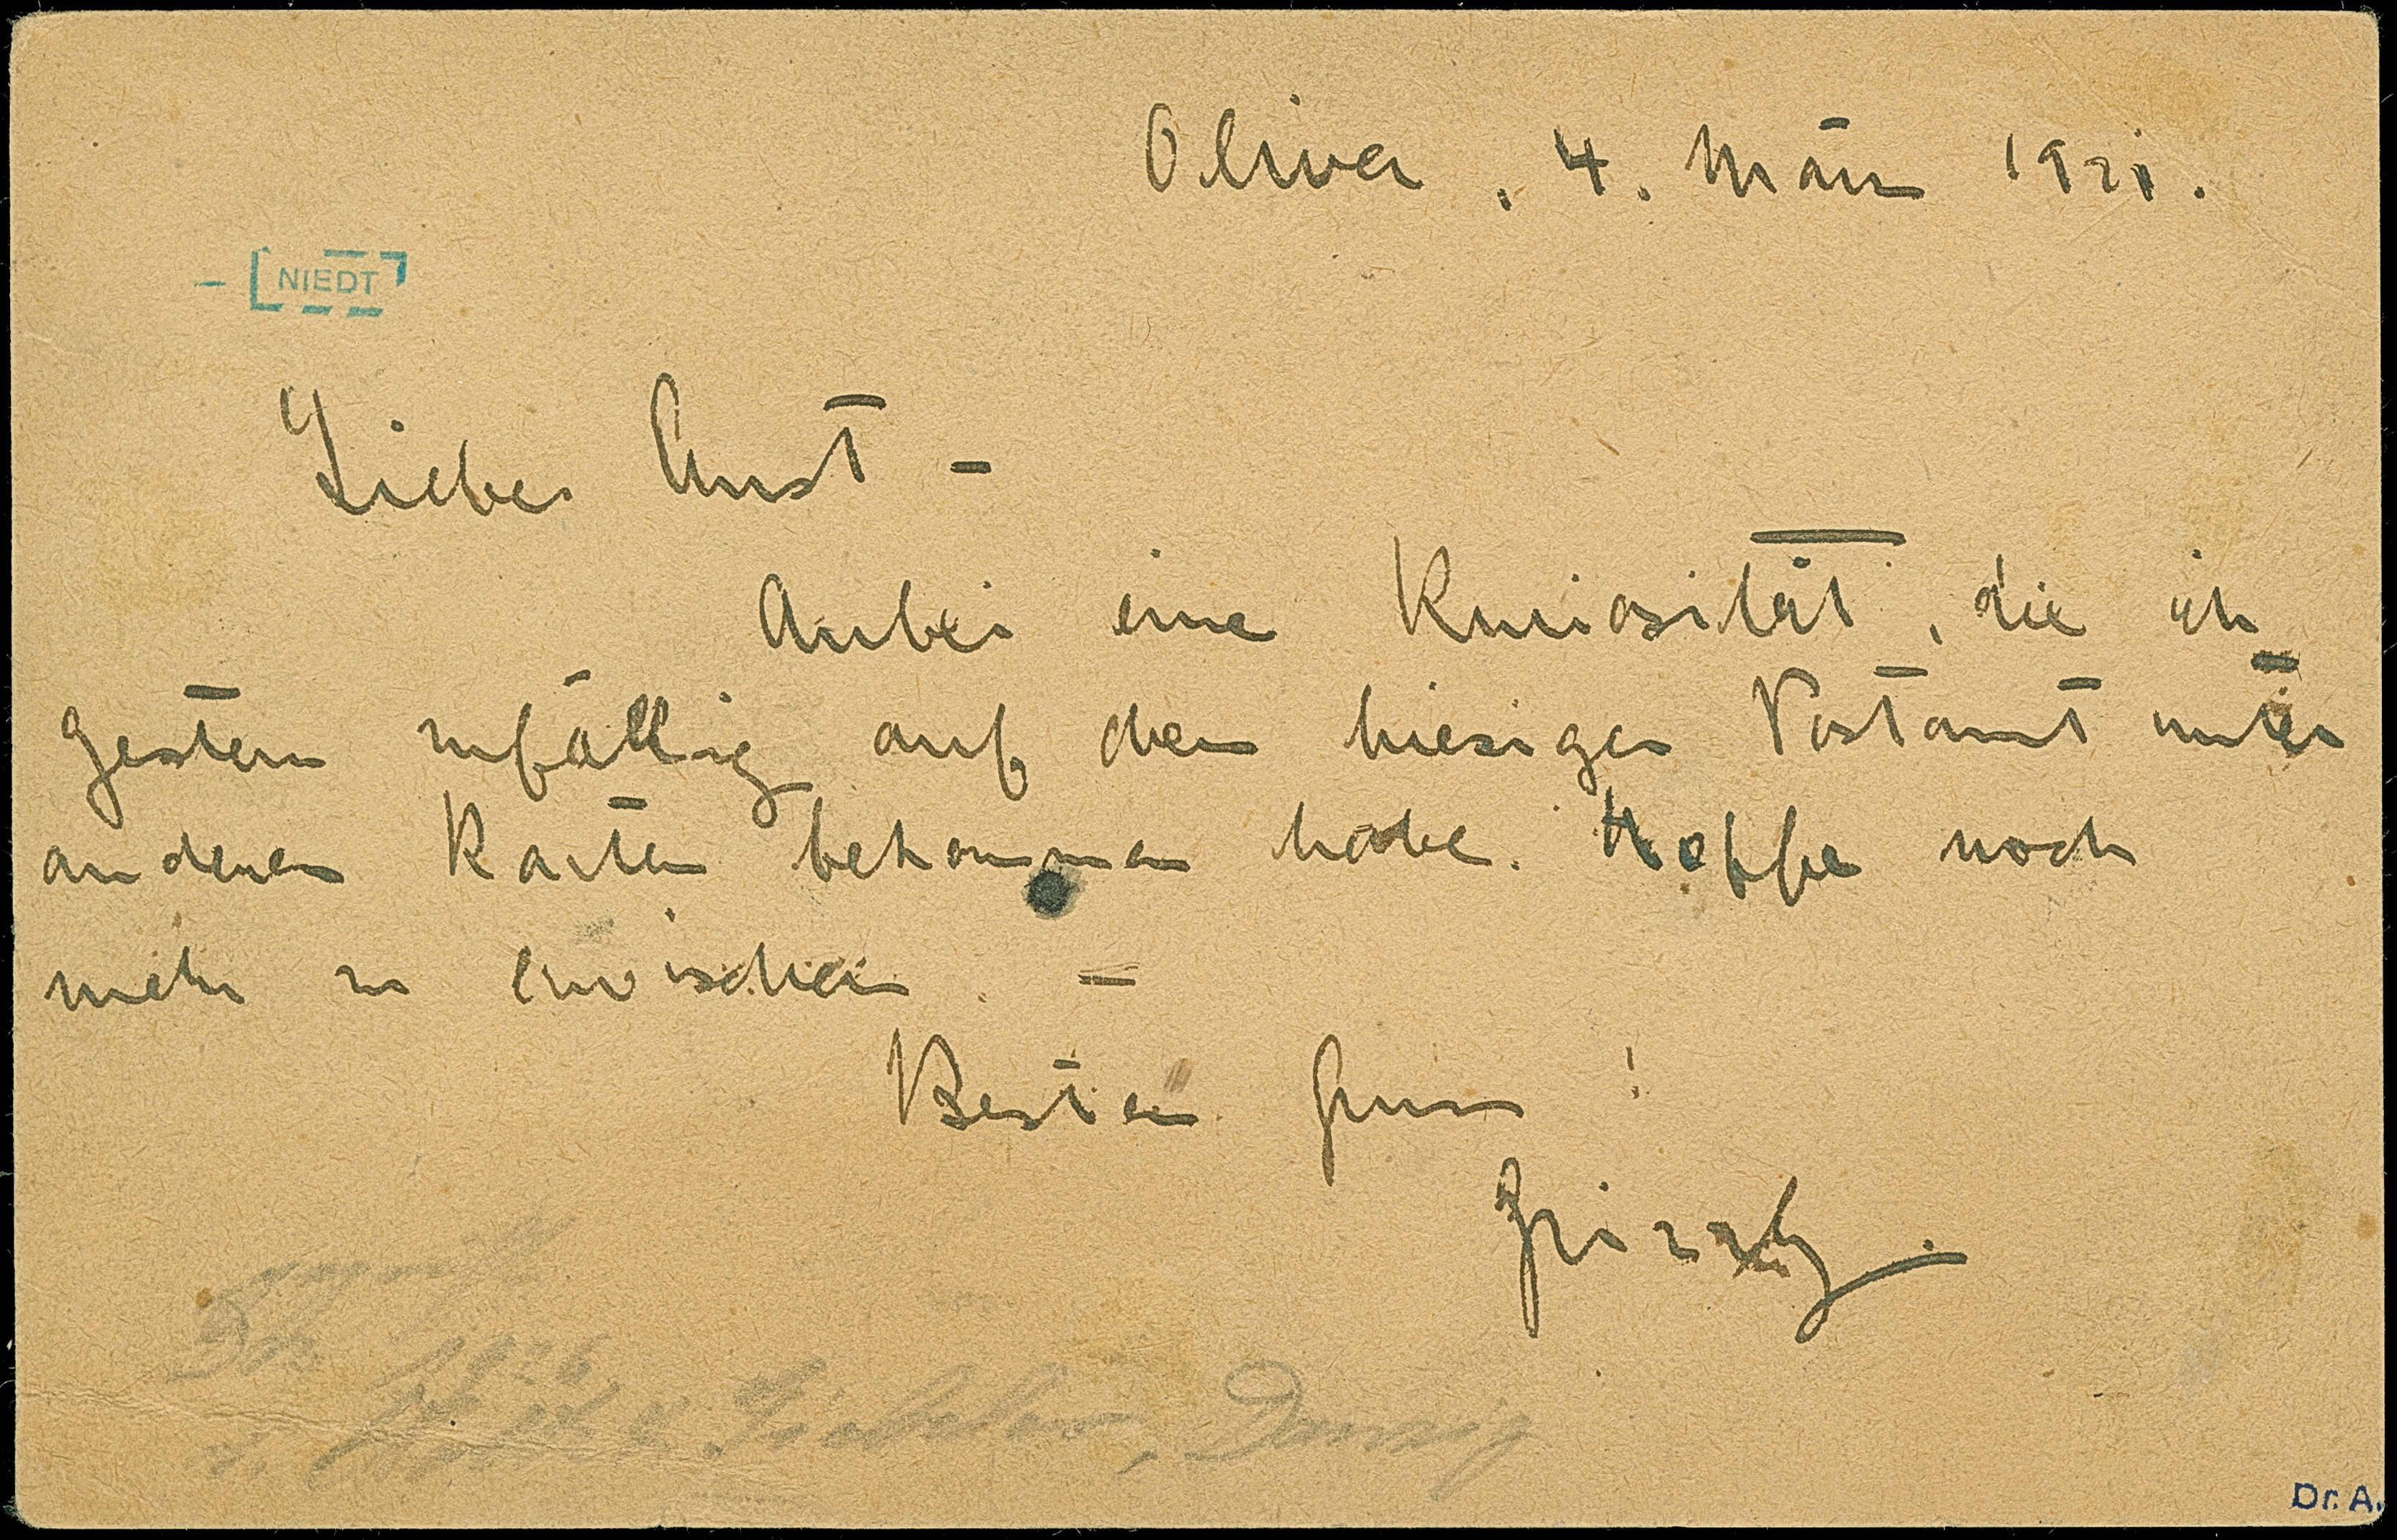 Oliva, 4. März 1921.
NIEDT
Lieber Aust –
Anbei eine Kuriosität, die ich
gestern zufällig auf dem hiesigen Postamt unter
anderen Karten bekommen habe. Hoffe noch
mehr zu erwischen. –
Besten Gruss!
Grizzly.
1926
Danzig
Dr. A.